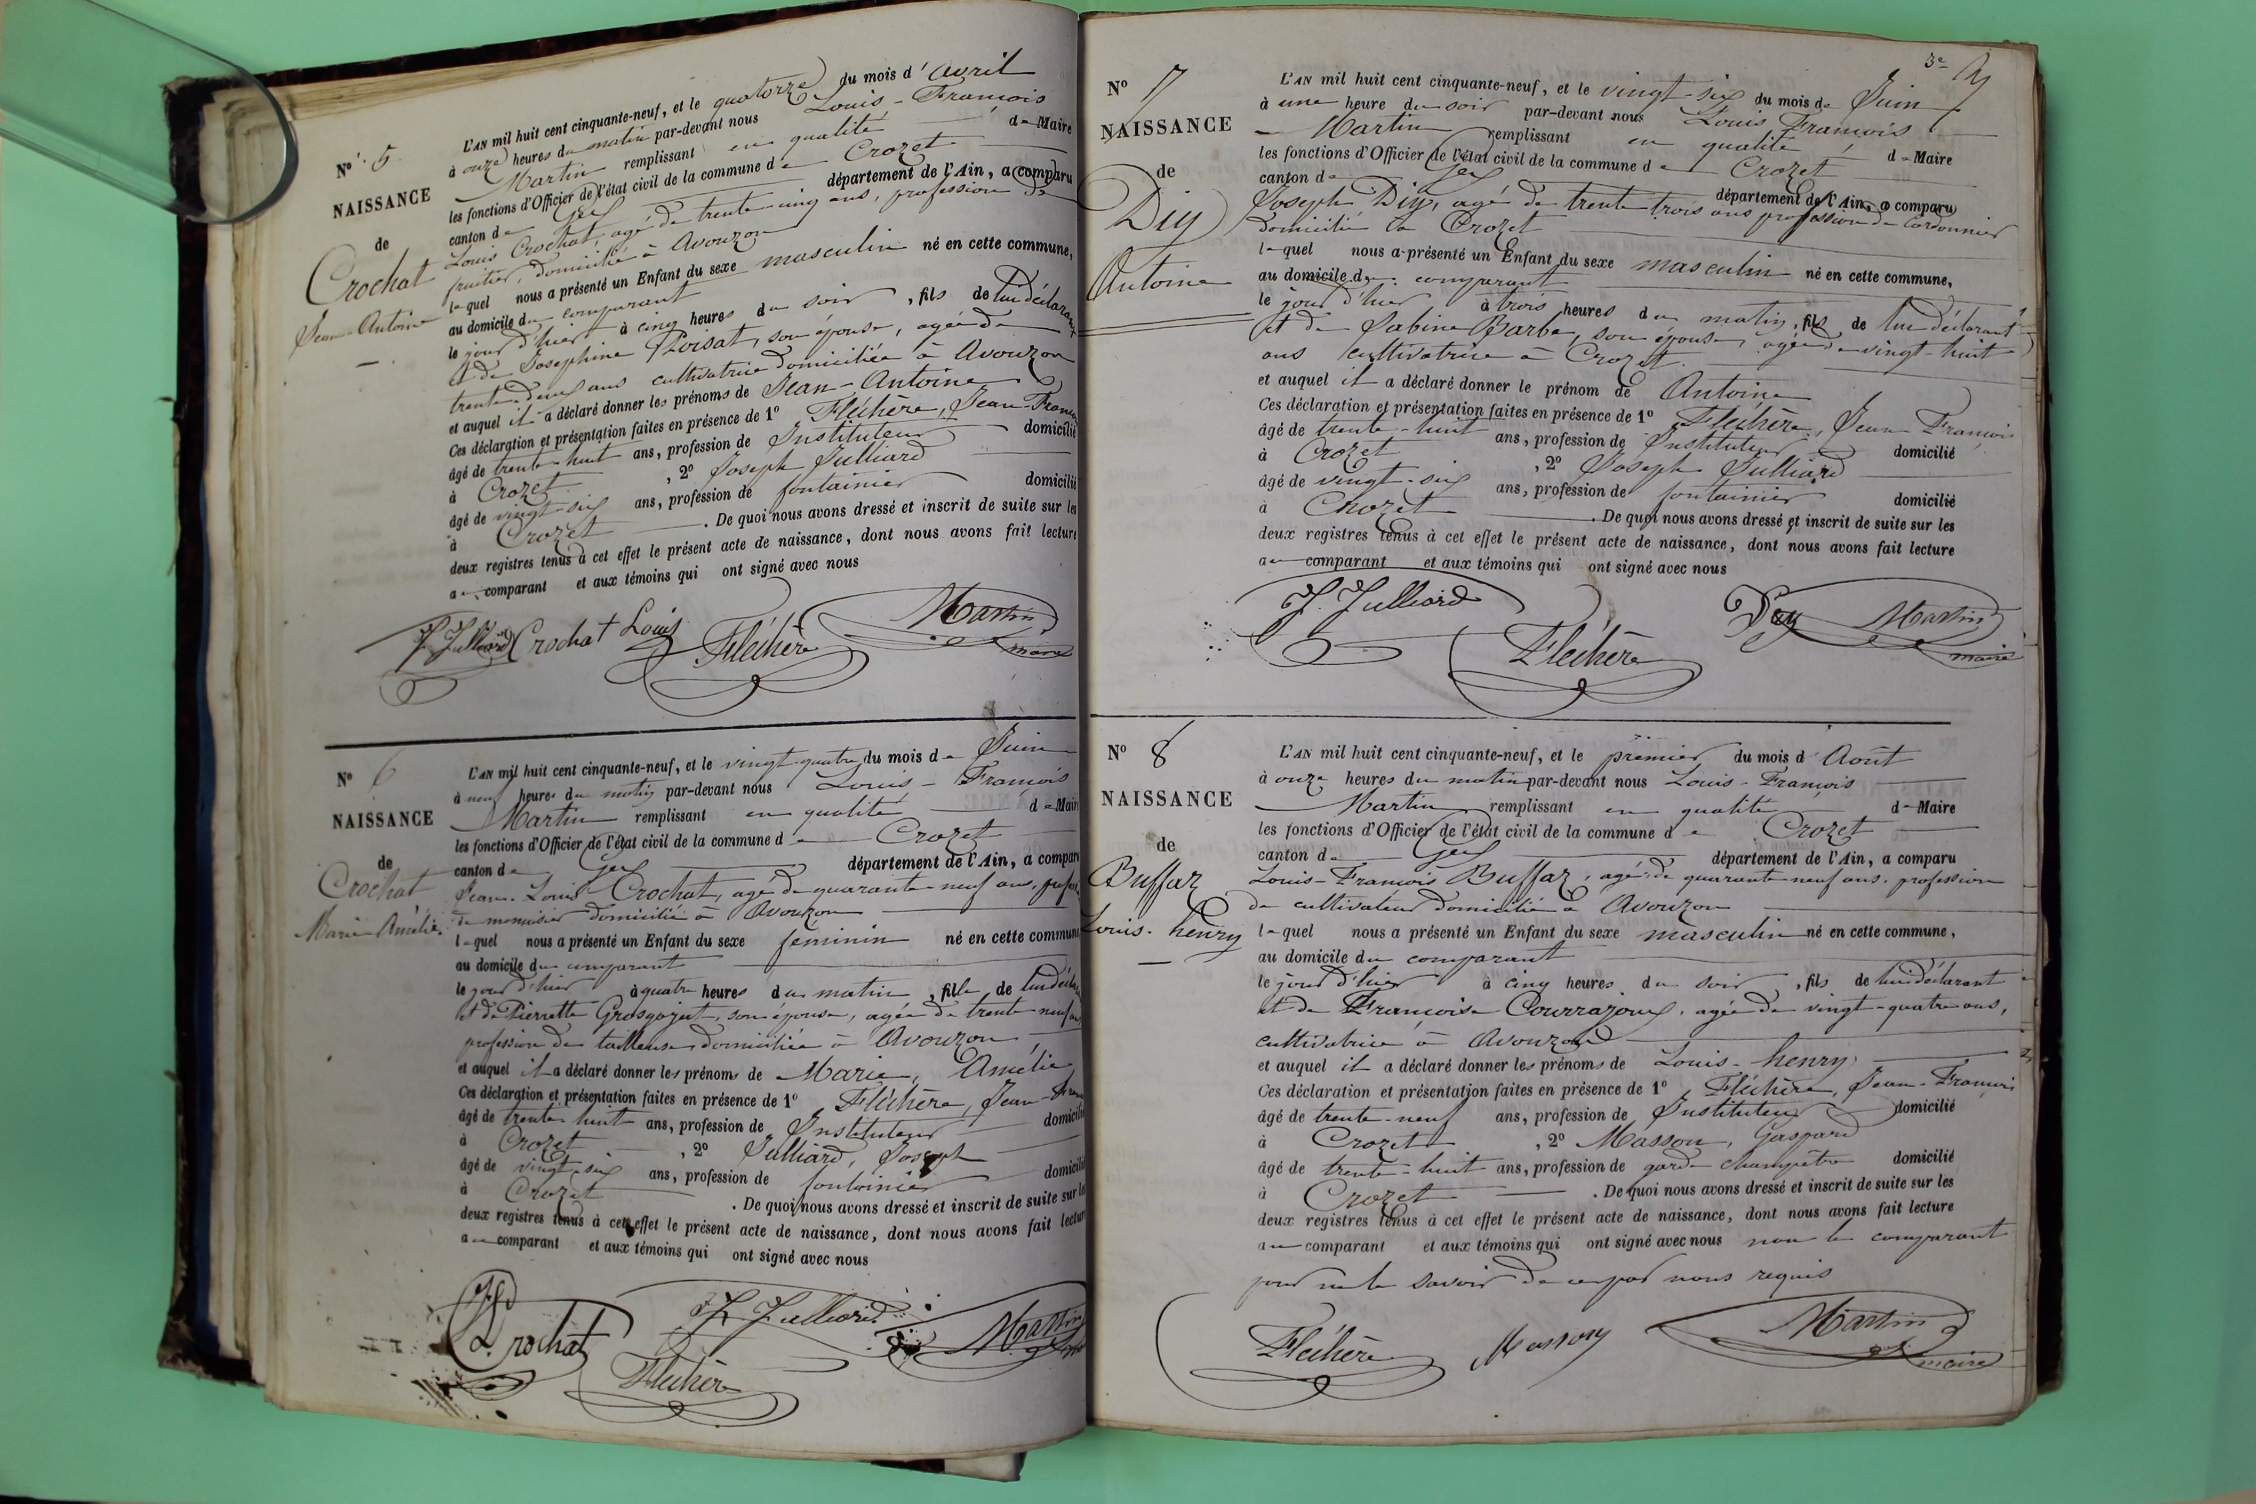 N° 5
NAISSANCE
de
Crochat
Jean-Antoine
L'AN mil huit cent cinquante-neuf, et le quatorze du mois d'Avril
à onze heures du matin par-devant nous Louis-François
Martin remplissant en qualité de Maire
les fonctions d'Officier de l'état civil de la commune de Crozet
canton de Gex département de l'Ain, a comparu
Louis Crochat, agé de trente-cinq ans, profession de
fruitier, domicilié à Avouzon
lequel nous a présenté un Enfant du sexe masculin né en cette commune,
au domicile du comparant
le jour d'hier à cinq heures du soir, fils de lui déclarant
et de Josephine Ploisat, son épouse, agée de
trente-deux ans cultivatrice domiciliée à Avouzon
et auquel il a déclaré donner les prénoms de Jean-Antoine
Ces déclaration et présentation faites en présence de 1° Fléchère, Jean-François
âgé de trente-huit ans, profession de Instituteur domicilié
à Crozet, 2° Joseph Julliard
âgé de vingt-six ans, profession de fontainier domicilié
à Crozet. De quoi nous avons dressé et inscrit de suite sur les
deux registres tenus à cet effet le présent acte de naissance, dont nous avons fait lecture
au comparant et aux témoins qui ont signé avec nous
J. Julliard Crochat Louis Fléchère Martin
maire
N° 6
NAISSANCE
de
Crochat
Marie-Amélie
L'AN mil huit cent cinquante-neuf, et le vingt-quatre du mois de Juin
à neuf heures du matin par-devant nous Louis-François
Martin remplissant en qualité de Maire
les fonctions d'Officier de l'état civil de la commune de Crozet
canton de Gex département de l'Ain, a comparu
Jean-Louis Crochat, agé de quarante-neuf ans, profession
de menuisier domicilié à Avouzon
lequel nous a présenté un Enfant du sexe feminin né en cette commune
au domicile du comparant
le jour d'hier à quatre heures du matin, fille de lui déclarant
et de Pierrette Grosgojat, son épouse, agée de trente-neuf ans
profession de tailleuse domiciliée à Avouzon
et auquel il a déclaré donner les prénoms de Marie, Amélie
Ces déclaration et présentation faites en présence de 1° Fléchère, Jean-François
âgé de trente huit ans, profession de Instituteur domicilié
à Crozet, 2° Julliard, Joseph
âgé de vingt-six ans, profession de fontainier domicilié
à Crozet. De quoi nous avons dressé et inscrit de suite sur les
deux registres tenus à cet effet le présent acte de naissance, dont nous avons fait lecture
au comparant et aux témoins qui ont signé avec nous
Crochat J. Julliard Martin
Fléchère
3e
N° 7
NAISSANCE
de
Diy
Antoine
L'AN mil huit cent cinquante-neuf, et le vingt-six du mois de Juin
à une heure du soir par-devant nous Louis François
Martin remplissant en qualité de Maire
les fonctions d'Officier de l'état civil de la commune de Crozet
canton de Gex département de l'Ain, a comparu
Joseph Diy, agé de trente-trois ans profession de Cordonnier
domicilié à Crozet
lequel nous a présenté un Enfant du sexe masculin né en cette commune,
au domicile du comparant
le jour d'hier à trois heures du matin, fils de lui déclarant
et de Sabine Barbe, son épouse, agée de vingt-huit
ans cultivatrice à Crozet
et auquel il a déclaré donner le prénom de Antoine
Ces déclaration et présentation faites en présence de 1° Fléchère, Jean-François
âgé de trente-huit ans, profession de Instituteur domicilié
à Crozet, 2° Joseph Julliard
âgé de vingt-six ans, profession de fontainier domicilié
à Crozet. De quoi nous avons dressé et inscrit de suite sur les
deux registres tenus à cet effet le présent acte de naissance, dont nous avons fait lecture
au comparant et aux témoins qui ont signé avec nous
J. Julliard Fléchère Martin
maire
N° 8
NAISSANCE
de
Buffaz
Louis-henry
L'AN mil huit cent cinquante-neuf, et le premier du mois d'Août
à onze heures du matin par-devant nous Louis-François
Martin remplissant en qualité de Maire
les fonctions d'Officier de l'état civil de la commune de Crozet
canton de Gex département de l'Ain, a comparu
Louis-François Buffaz, agé de quarante-neuf ans, profession
de cultivateur domicilié à Avouzon
lequel nous a présenté un Enfant du sexe masculin né en cette commune,
au domicile du comparant
le jour d'hier à cinq heures du soir, fils de lui déclarant
et de Françoise Courrajoux, agée de vingt-quatre ans,
cultivatrice à Avouzon
et auquel il a déclaré donner les prénoms de Louis-henry
Ces déclaration et présentation faites en présence de 1° Fléchère, Jean-François
âgé de trente-neuf ans, profession de Instituteur domicilié
à Crozet, 2° Masson, Gaspard
âgé de trente-huit ans, profession de garde champêtre domicilié
à Crozet. De quoi nous avons dressé et inscrit de suite sur les
deux registres tenus à cet effet le présent acte de naissance, dont nous avons fait lecture
au comparant et aux témoins qui ont signé avec nous non le comparant
pour ne le savoir de ce par nous requis
Fléchère Masson Martin
maire